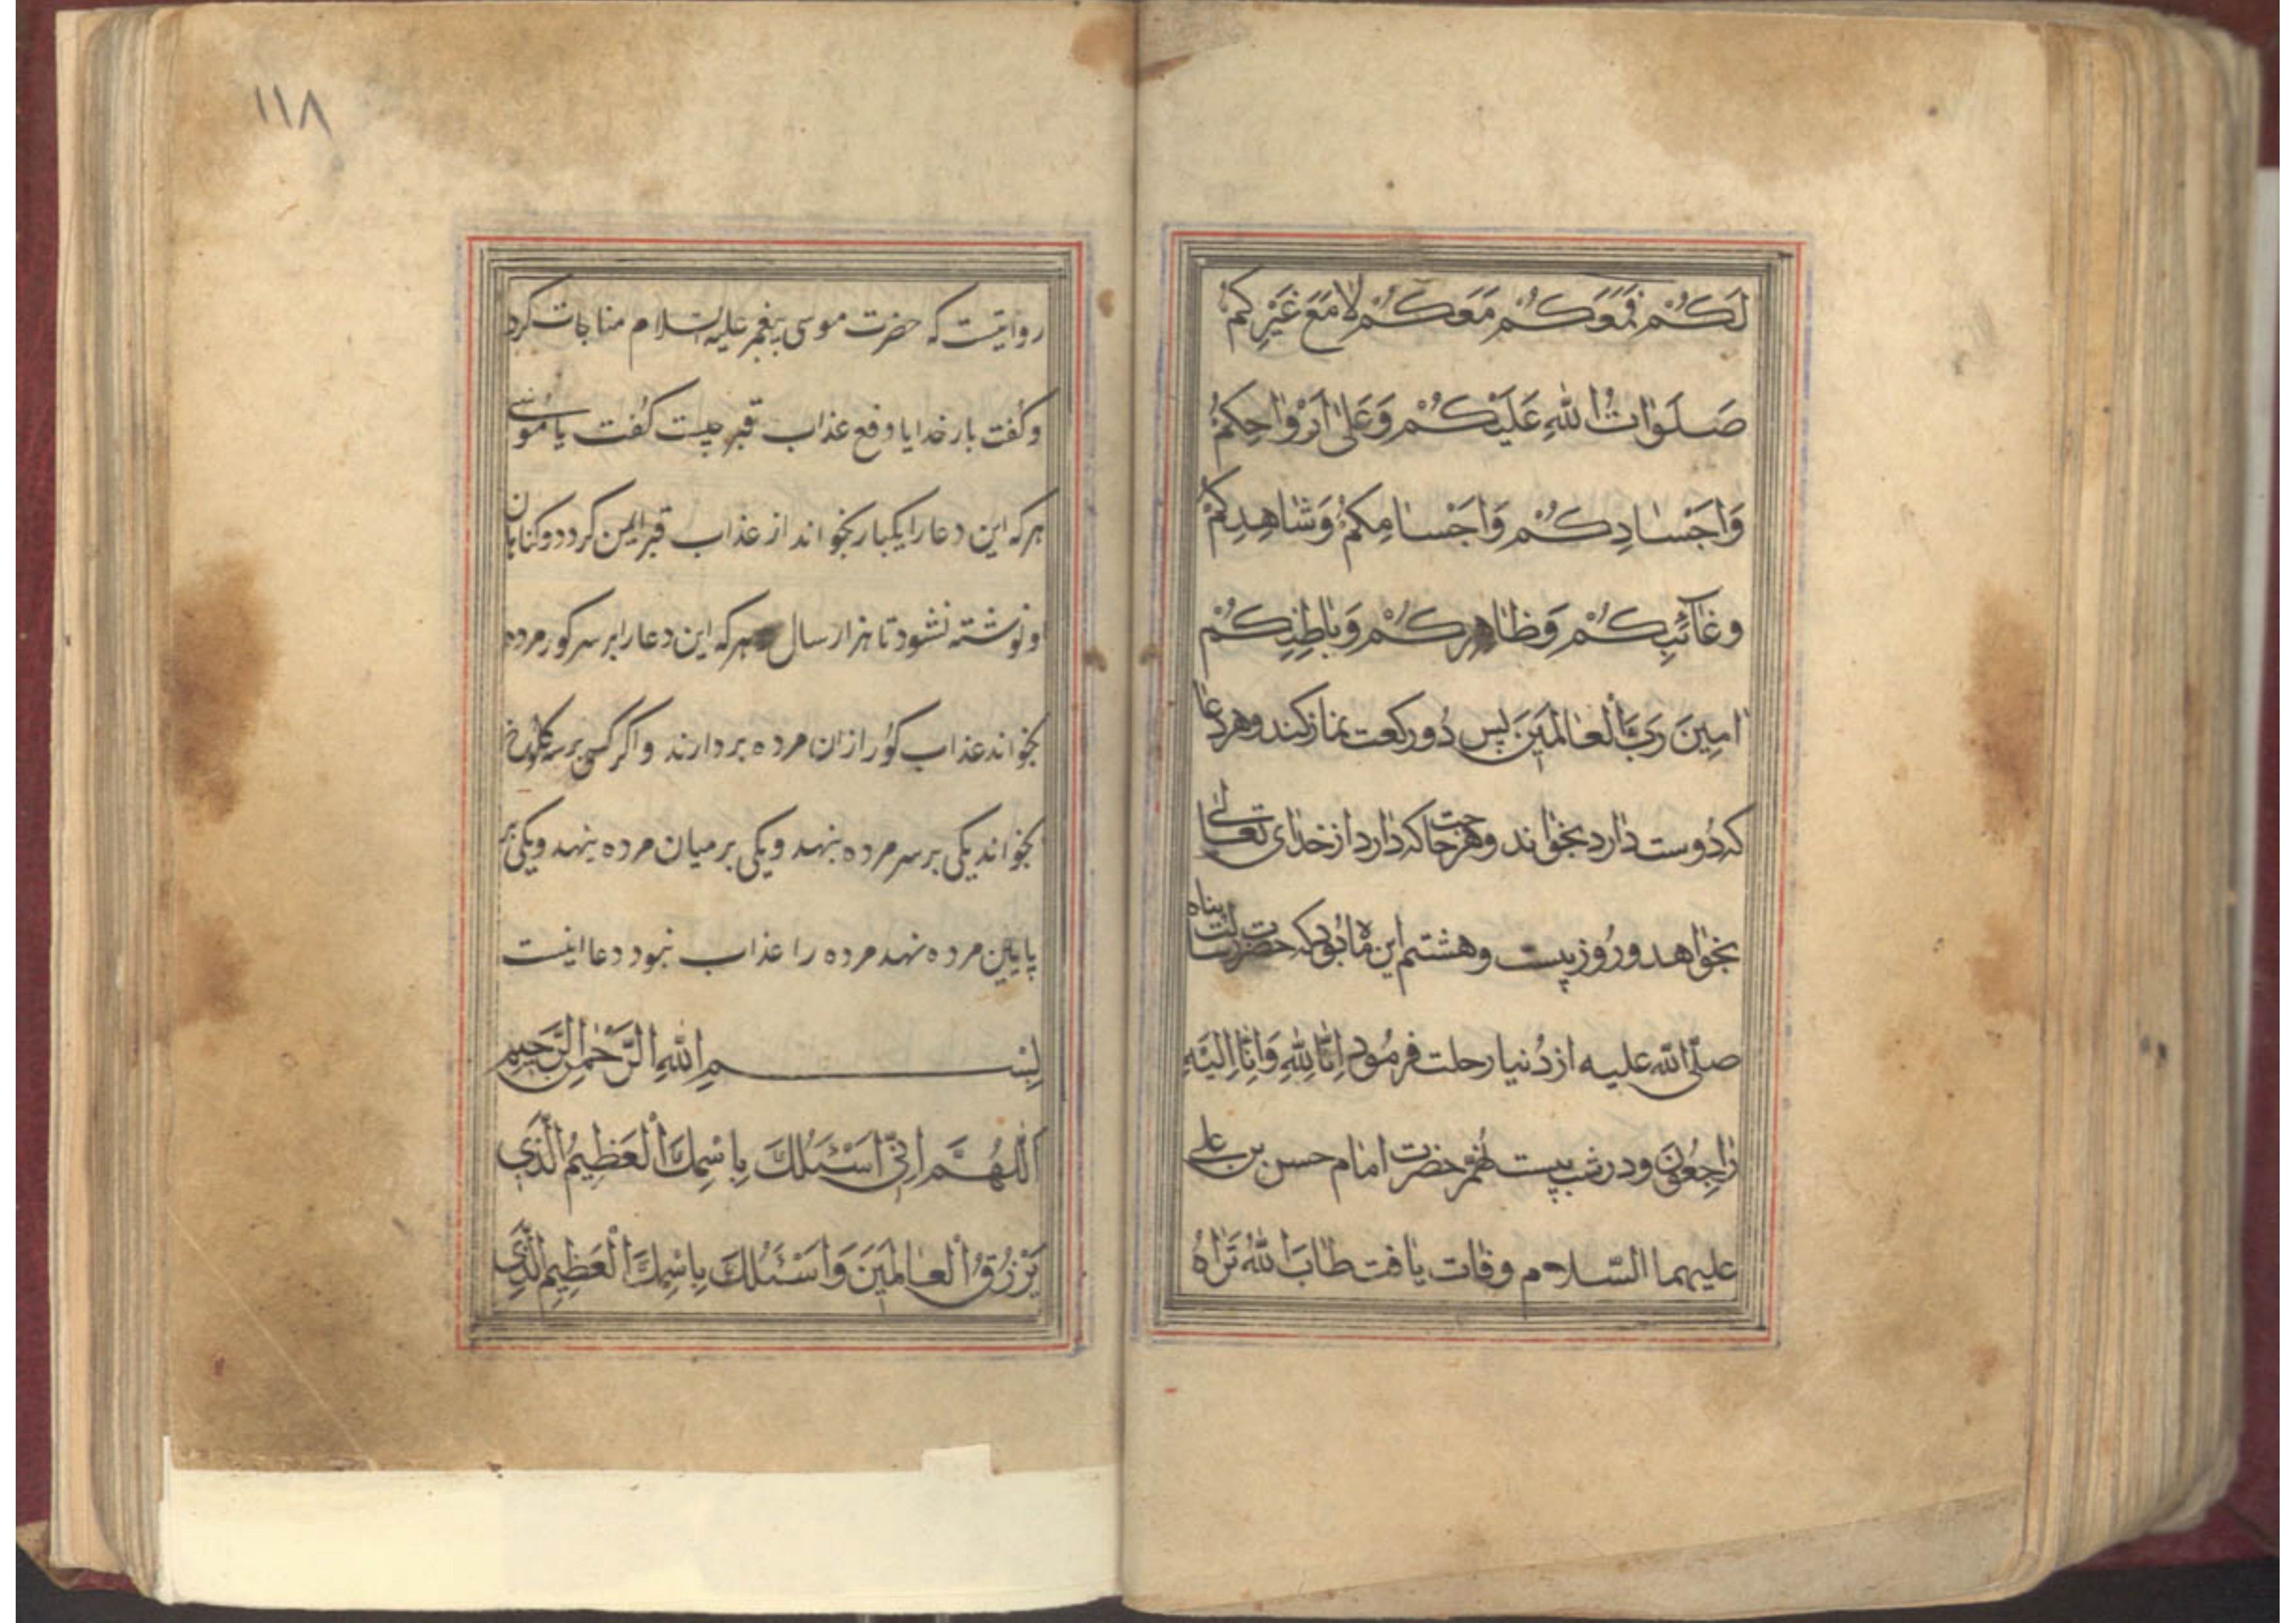 لَكُمْ فَمَعَكُمْ مَعَكُمْ لَا مَعَ غَيْرِكُمْ
صَلَوَاتُ اللهِ عَلَيْكُمْ وَعَلَىٰ اَرْوَاحِكُمْ
وَاَجْسَادِكُمْ وَاَجْسَامِكُمْ وَشَاهِدِكُمْ
وَغَائِبِكُمْ وَظَاهِرِكُمْ وَبَاطِنِكُمْ
امِينَ رَبَّ الْعَالَمِينَ پس دُو رکعت نماز کند و هر دعا
که دُوست دارد بخواند و هر حاجت که دارد از خدای تعالی
بخواهد و رُوز بیست و هشتم این ماه بُود که حضرت رسالت پناه
صلّی الله علیه از دُنیا رحلت فرمُود اِنَّا لِلّٰهِ وَاِنَّا اِلَيْهِ
رَاجِعُونَ و در شب بیست نُهم حضرت امام حسن بن علی
علیهما السّلام وفات یافت طَابَ اللهُ ثَرَاهُ
۱۱۸
روایتست که حضرت موسی پیغمبر علیه السلام مناجات کرد
و کُفت بار خدایا دفع عذاب قبر چیست کُفت یا مُوسی
هر که این دعا را یکبار بخواند از عذاب قبر ایمن کردد و کناهان
او نوشته نشود تا هزار سال هر که این دعا را بر سر کور مرده
بخواند عذاب کوُر از ان مرده بردارند و اکر کسی بر سه کلوُخ
بخواند یکی بر سر مرده بنهد و یکی بر میان مرده بنهد و یکی بر
پایین مرده نهد مرده را عذاب نبود دعا اینست
بِسْمِ اللهِ الرَّحْمٰنِ الرَّحِيْمِ
اَللّٰهُمَّ اِنِّي اَسْئَلُكَ بِاسْمِكَ الْعَظِيمُ الَّذِي
يَرْزُقُ الْعَالَمِينَ وَاَسْئَلُكَ بِاسْمِكَ الْعَظِيمِ الَّذِي